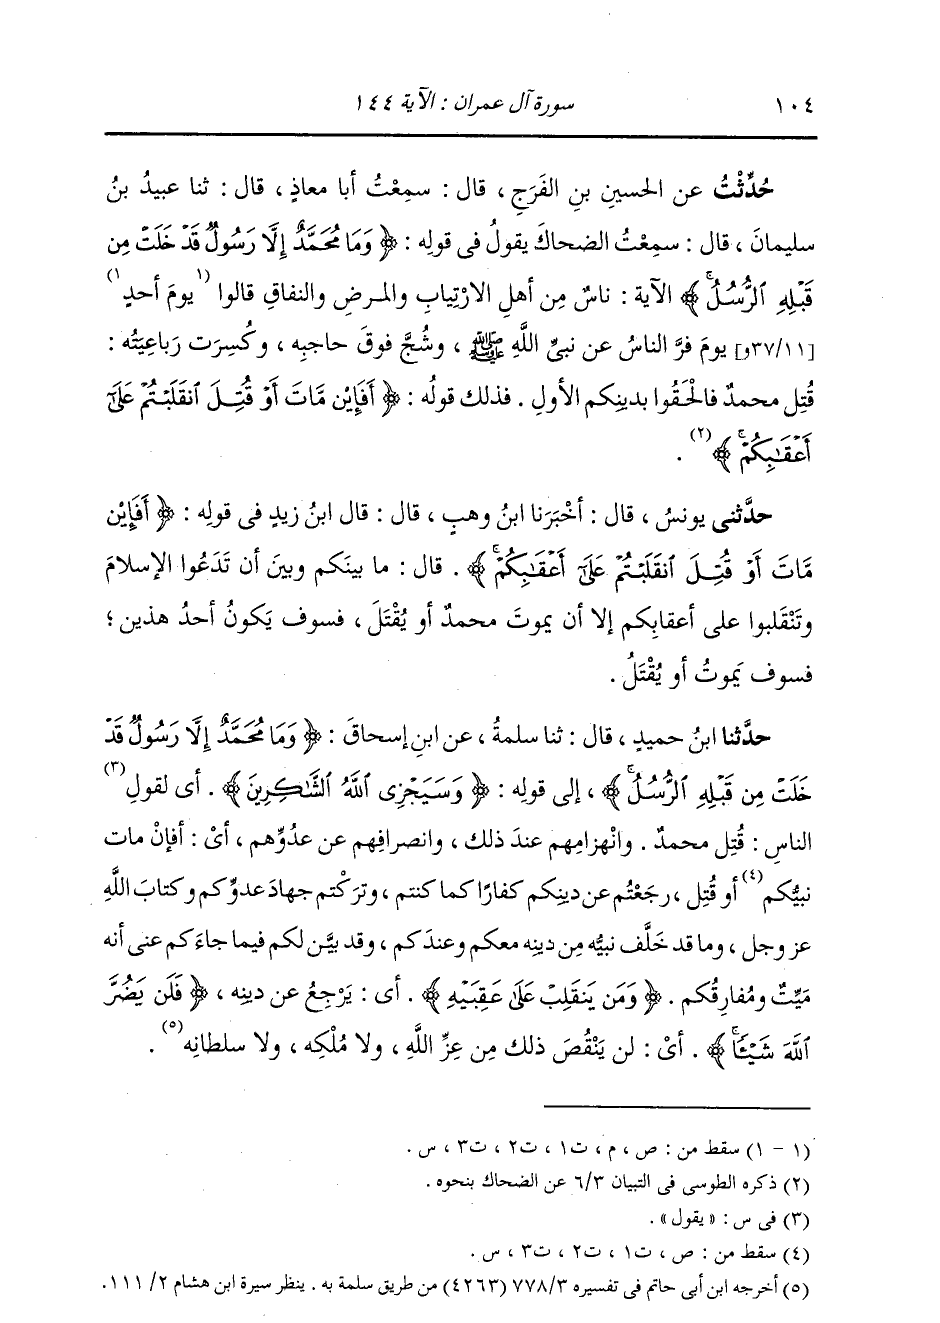 ١٠٤ سورة آل عمران : الآية ١٤٤
حُدِّثْتُ عن الحسينِ بنِ الفَرَجِ ، قال : سمِعْتُ أبا معاذٍ ، قال : ثنا عبيدُ بنُ
سليمانَ ، قال : سمِعْتُ الضحاكَ يقولُ فى قولِه : ﴿ وَمَا مُحَمَّدٌ إِلَّا رَسُولٌ قَدْ خَلَتْ مِن
قَبْلِهِ ٱلرُّسُلُۚ ﴾ الآية : ناسٌ مِن أهلِ الارْتِيابِ والمرضِ والنفاقِ قالوا (١يومَ أحدٍ١)
[٣٧/١١و] يومَ فرَّ الناسُ عن نبىِّ اللَّهِ ﷺ ، وشُجَّ فوقَ حاجبِه ، وكُسِرَت رَباعِيَتُه :
قُتِل محمدٌ فالْحَقُوا بدينِكم الأولِ . فذلك قولُه : ﴿ أَفَإِيْن مَّاتَ أَوْ قُتِلَ ٱنقَلَبْتُمْ عَلَىٰٓ
أَعْقَٰبِكُمْۚ ﴾(٢) .
حدَّثنى يونسُ ، قال : أخْبَرَنا ابنُ وهبٍ ، قال : قال ابنُ زيدٍ فى قولِه : ﴿ أَفَإِيْن
مَّاتَ أَوْ قُتِلَ ٱنقَلَبْتُمْ عَلَىٰٓ أَعْقَٰبِكُمْۚ ﴾ . قال : ما بينَكم وبينَ أن تَدَعُوا الإسلامَ
وتَنْقَلبوا على أعقابِكم إلا أن يموتَ محمدٌ أو يُقْتَلَ ، فسوف يَكونُ أحدُ هذين ؛
فسوف يَموتُ أو يُقْتَلُ .
حدَّثنا ابنُ حميدٍ ، قال : ثنا سلمةُ ، عن ابنِ إسحاقَ : ﴿ وَمَا مُحَمَّدٌ إِلَّا رَسُولٌ قَدْ
خَلَتْ مِن قَبْلِهِ ٱلرُّسُلُۚ ﴾ ، إلى قولِه : ﴿ وَسَيَجْزِى ٱللَّهُ ٱلشَّٰكِرِينَ ﴾ . أى لقولِ(٣)
الناسِ : قُتِل محمدٌ . وانْهزامِهم عندَ ذلك ، وانصرافِهم عن عدُوِّهم ، أىْ : أفإنْ مات
نبيُّكم(٤) أو قُتِل ، رجَعْتُم عن دينِكم كفارًا كما كنتم ، وترَكْتم جهادَ عدوِّكم وكتابَ اللَّهِ
عز وجل ، وما قد خَلَّف نبيُّه مِن دينِه معكم وعندَكم ، وقد بيَّن لكم فيما جاءَكم عنى أنه
مَيِّتٌ ومُفارِقُكم . ﴿ وَمَن يَنقَلِبْ عَلَىٰ عَقِبَيْهِ ﴾ . أى : يَرْجِعُ عن دينِه ، ﴿ فَلَن يَضُرَّ
ٱللَّهَ شَيْـًٔاۚ ﴾ . أىْ : لن يَنْقُصَ ذلك مِن عِزِّ اللَّهِ ، ولا مُلْكِه ، ولا سلطانِه(٥) .
(١ - ١) سقط من : ص ، م ، ت١ ، ت٢ ، ت٣ ، س .
(٢) ذكره الطوسى فى التبيان ٦/٣ عن الضحاك بنحوه .
(٣) فى س : « يقول » .
(٤) سقط من : ص ، ت١ ، ت٢ ، ت٣ ، س .
(٥) أخرجه ابن أبى حاتم فى تفسيره ٧٧٨/٣ (٤٢٦٣) من طريق سلمة به . ينظر سيرة ابن هشام ٢/ ١١١.